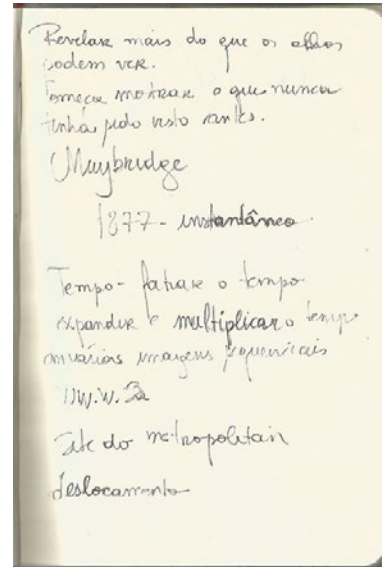 Revelar mais do que os olhos
podem ver.
começa mostrar o que nunca
tinha sido visto antes.
Muybridge
1877 - instantâneo
Tempo - fatiar o tempo
expandir e multiplicar o tempo
em várias imagens sequenciais
Site do metropolitan
deslocamento